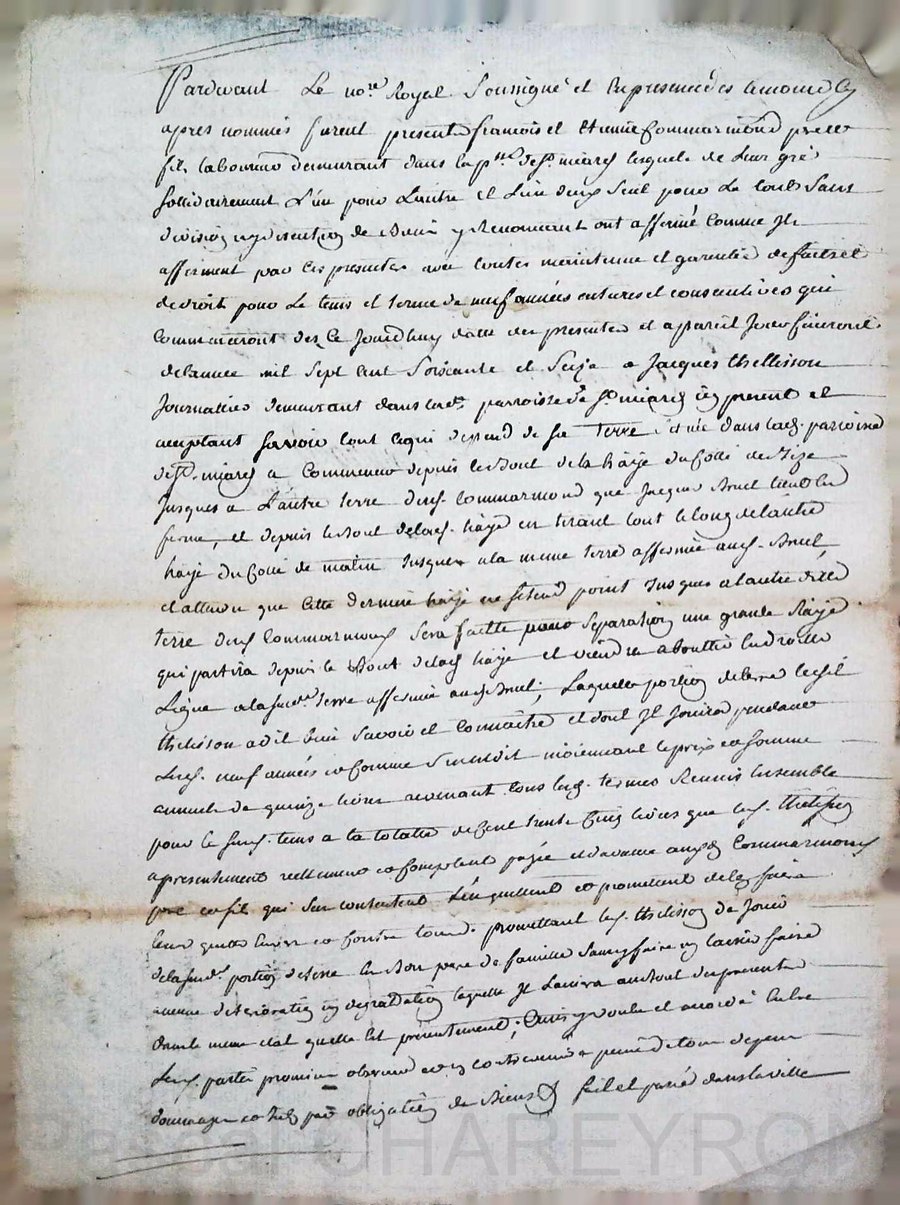 Pardevant Le no.re Royal Soussigné et en presence des temoins cy
apres nommés furent presents françois et Etienne Commarmond pere et
fils laboureurs demeurant dans la p.sse de S.t lesquels de Leur gré
sollidairement L'un pour L'autre et L'un deux seul pour Le tout Sans
division ny discution de Biens y Renoncant ont affermé Comme Ils
afferment par Ces presentes avec toutes maintenue et garentie de fait et
de droit pour Le tems et terme de neuf années entieres et consecutives qui
Commenceront des Ce Jourdhuy datte des presentes et a pareil Jour finiront
de lannée mil Sept Cent Soixante et Seize a Jacques thellisson
Journallier demeurant dans lad. parroisse de S.t icy present et
acceptant Savoir tout ce qui depend de sa Terre Située dans lad. parroisse
de S.t a Commencer depuis le Bout de la haye du Coté de Bize
Jusques a L'autre terre desd. Commarmond que Jacques Bruel tient en
ferme, et depuis le Bout de lad. haye en tirant tout le long de l'autre
haye du Coté de matin Jusques a la meme terre affermée aud. Bruel
et attendu que Cette derniere haye ne s'etend point Jusques a lautre ditte
terre desd. Commarmond Sera faitte pour Separation une grande Raye
qui partira depuis le Bout de lad. haye et viendra aboutir en droitte
Ligne a la susd.te terre affermée aud. Bruel; Laquelle portion de terre led.
thelisson a dit bien Savoir et Connaitre et dont Il Jouira pendant
Lesd. neuf années et Comme S'entend moienant le prix et Somme
annuelle de quinze livres revenant tous lesd. termes Reunis Ensemble
pour le susd. tems a la totalle de Cent trente Cinq livres que led. thelisson
a presentement reellement et Comptant payé et d'avance auxd. Commarmond
pere et fils qui S'en contentent L'en quittent et promettent de l'en faire
tenir quitte Envers et Contre tous. promettant led. thelisson de Jouir
de la susd.te portion de terre en Bon pere de famille Sans y faire ny laisser faire
aucune deterioration ny degradation laquelle Il Laissera au bout des presentes
dans le meme etat quelle Est presentement; Ainsy voulu et accordé entre
Lesd. parties promis observer et ny contrevenir a peine de tous depens
dommages et par obligation de Biens &. fait et passé dans la ville